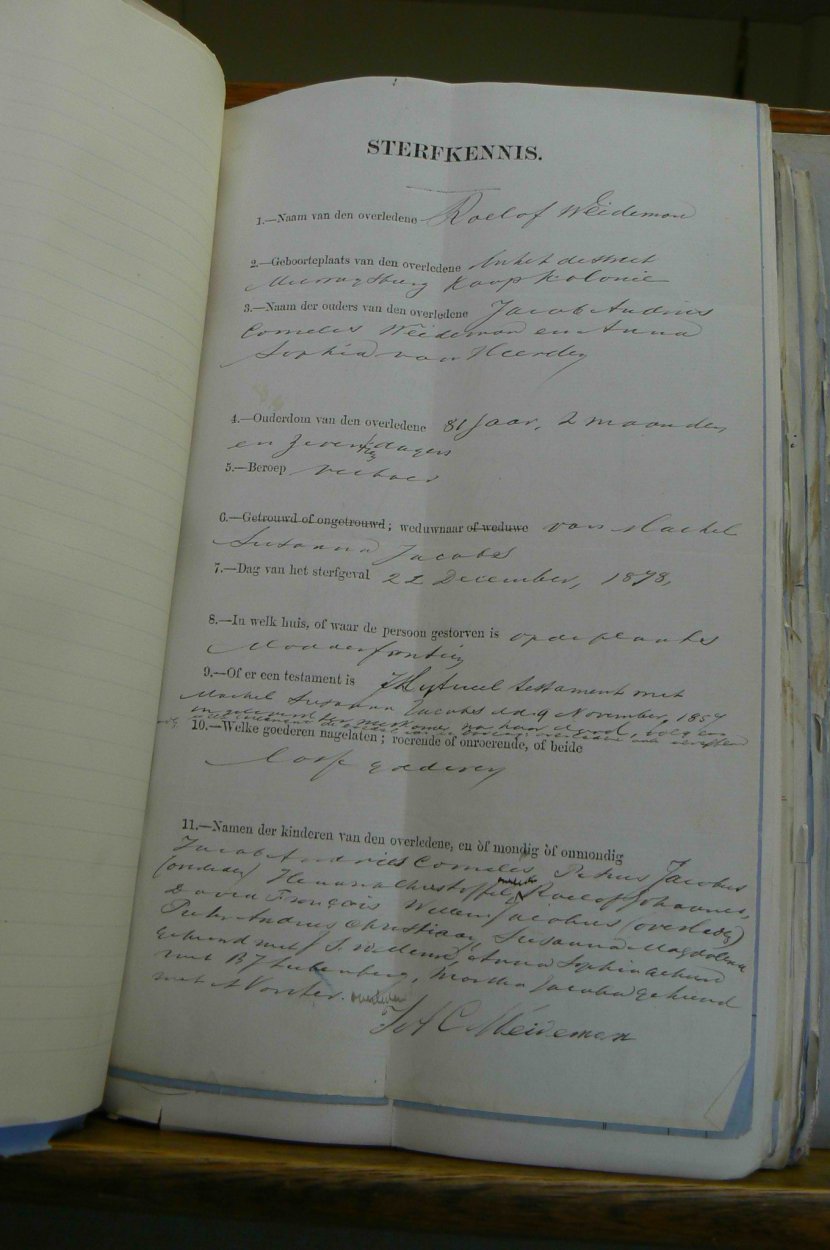 STERFKENNIS.
1.—Naam van den overledene Roelof Weideman
2.—Geboorteplaats van den overledene In het destrict
Kaap Kolonie
3.—Naam der ouders van den overledene Jacob Andries
Cornelis Weideman en Anna
Sophia van Heerden
4.—Ouderdom van den overledene 81 jaar, 2 maanden
en zeven dagen
5.—Beroep veeboer
6.—Getrouwd of ongetrouwd; weduwnaar of weduwe van Machel
Susanna Jacobs
7.—Dag van het sterfgeval 22 December, 1878,
8.—In welk huis, of waar de persoon gestorven is op de plaats
Modderfontein
9.—Of er een testament is testament met
Machel Susanna Jacobs d.d. 9 November, 1857
10.—Welke goederen nagelaten; roerende of onroerende, of beide
Losse goederen
11.—Namen der kinderen van den overledene, en òf mondig òf onmondig
Jacob Andries Cornelis, Petrus Jacobus
(overleden) Roelof Johannes,
David François Willem Jacobus (overleden)
Andries Christiaan, Susanna Magdalena
gehuwd met J. Willemse, Anna Sophia gehuwd
met B J Martha Jacoba gehuwd
met A Vorster. overleden
J A C Weideman